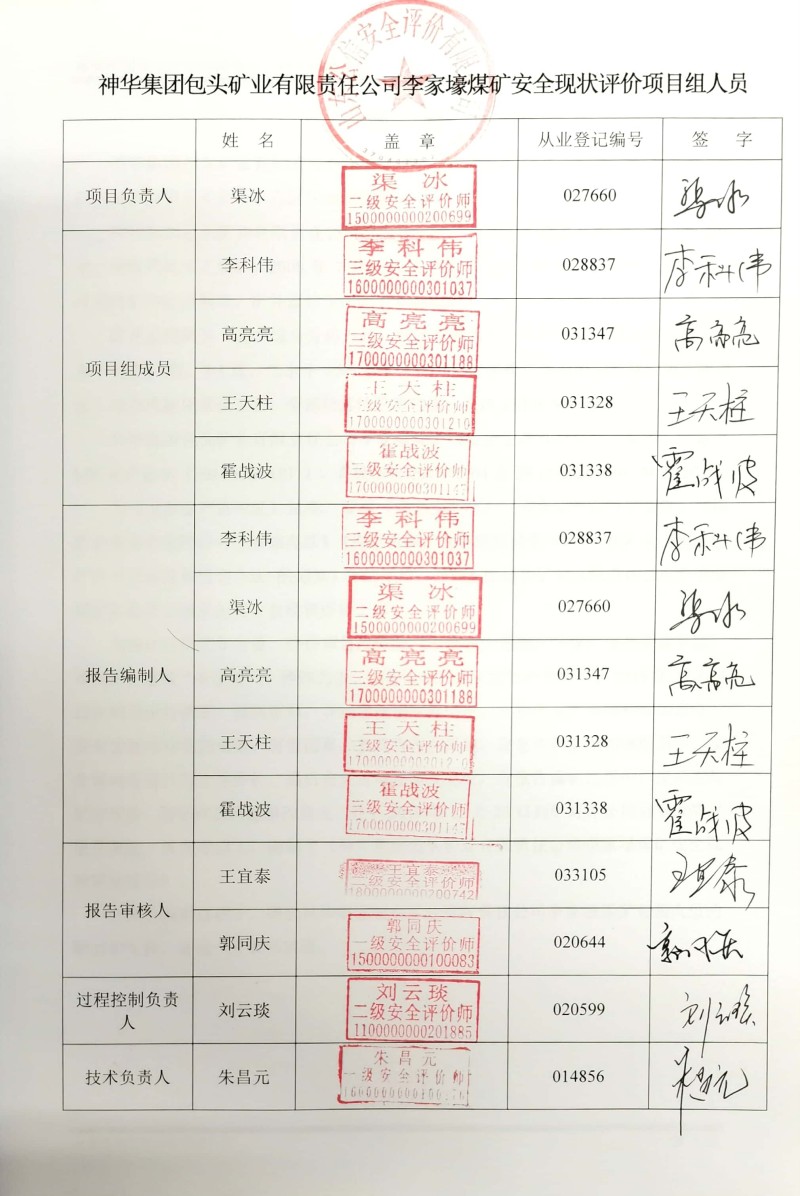 神华集团包头矿业有限责任公司李家壕煤矿安全现状评价项目组人员
姓 名 盖 章 从业登记编号 签 字
项目负责人 渠冰 渠冰 二级安全评价师 1500000000200699 027660 渠冰
项目组成员
李科伟 李科伟 三级安全评价师 1600000000301037 028837 李科伟
高亮亮 高亮亮 三级安全评价师 1700000000301188 031347 高亮亮
王天柱 王天柱 三级安全评价师 1700000000301210 031328 王天柱
霍战波 霍战波 三级安全评价师 1700000000301147 031338 霍战波
报告编制人
李科伟 李科伟 三级安全评价师 1600000000301037 028837 李科伟
渠冰 渠冰 二级安全评价师 1500000000200699 027660 渠冰
高亮亮 高亮亮 三级安全评价师 1700000000301188 031347 高亮亮
王天柱 王天柱 三级安全评价师 031328 王天柱
霍战波 霍战波 三级安全评价师 1700000000301147 031338 霍战波
报告审核人
王宜泰 王宜泰 二级安全评价师 1800000000200742 033105 王宜泰
郭同庆 郭同庆 一级安全评价师 1500000000100083 020644 郭同庆
过程控制负责人 刘云琰 刘云琰 二级安全评价师 1100000000201885 020599 刘云琰
技术负责人 朱昌元 朱昌元 一级安全评价师 014856 朱昌元